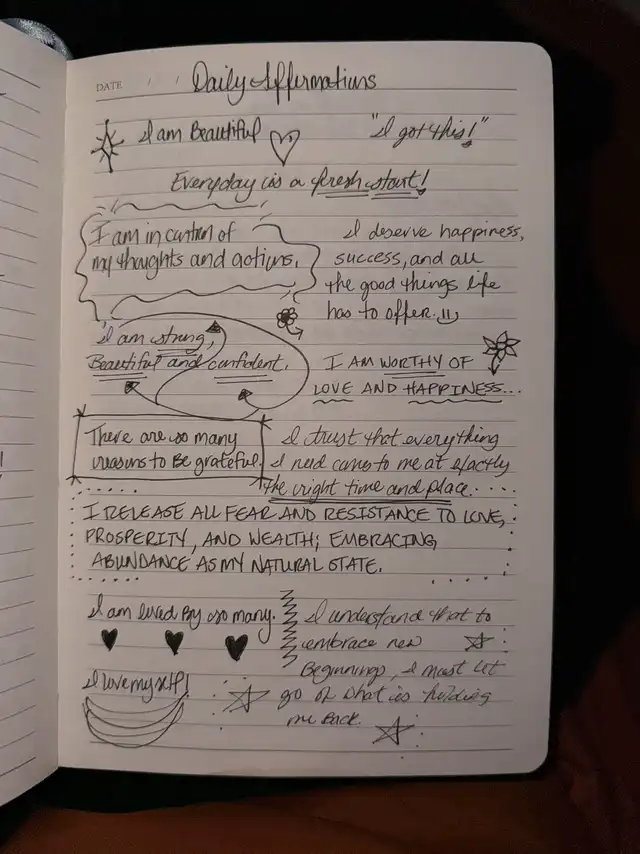 DATE / / Daily Affirmations
I am Beautiful
"I got this!"
Everyday is a fresh start!
I am in control of
my thoughts and actions.
I deserve happiness,
success, and all
the good things life
has to offer.
I am strong,
Beautiful and confident.
I AM WORTHY OF
LOVE AND HAPPINESS...
There are so many
reasons to Be grateful
I trust that everything
I need comes to me at exactly
the right time and place.
I RELEASE ALL FEAR AND RESISTANCE TO LOVE,
PROSPERITY, AND WEALTH; EMBRACING
ABUNDANCE AS MY NATURAL STATE.
I am loved By so many.
I love myself!
I understand that to
embrace new
Beginnings, I must let
go of what is holding
me Back.